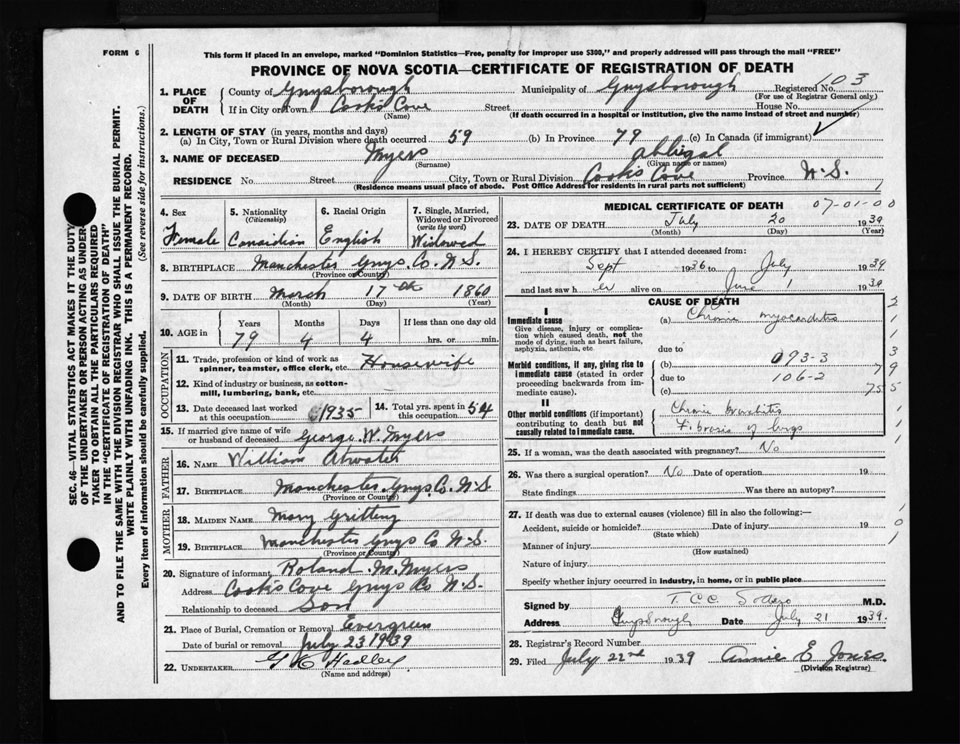 FORM 6
This form if placed in an envelope, marked "Dominion Statistics—Free, penalty for improper use $300," and properly addressed will pass through the mail "FREE"
PROVINCE OF NOVA SCOTIA—CERTIFICATE OF REGISTRATION OF DEATH
SEC. 46—VITAL STATISTICS ACT MAKES IT THE DUTY
OF THE UNDERTAKER OR PERSON ACTING AS UNDER-
TAKER TO OBTAIN ALL THE PARTICULARS REQUIRED
IN THE "CERTIFICATE OF REGISTRATION OF DEATH"
AND TO FILE THE SAME WITH THE DIVISION REGISTRAR WHO SHALL ISSUE THE BURIAL PERMIT.
WRITE PLAINLY WITH UNFADING INK. THIS IS A PERMANENT RECORD.
Every item of information should be carefully supplied. (See reverse side for instructions.)
1. PLACE OF DEATH County of Guysborough Municipality of Guysborough Registered No. 103
(For use of Registrar General only.)
If in City or Town Cook's Cove Street House No.
(Name) (If death occurred in a hospital or institution, give the name instead of street and number)
2. LENGTH OF STAY (in years, months and days)
(a) In City, Town or Rural Division where death occurred 59 (b) In Province 79 (c) In Canada (if immigrant) ✓
3. NAME OF DECEASED Myers Abbigal
(Surname) (Given name or names)
RESIDENCE No. Street City, Town or Rural Division Cook's Cove Province N.S.
(Residence means usual place of abode. Post Office Address for residents in rural parts not sufficient) 1
4. Sex Female
5. Nationality (Citizenship) Canaidian
6. Racial Origin English
7. Single, Married, Widowed or Divorced (write the word) Widowed
8. BIRTHPLACE Manchester Guys. Co. N.S.
(Province or Country)
9. DATE OF BIRTH March 17th 1860
(Month) (Day) (Year)
10. AGE in Years 79 Months 4 Days 4 If less than one day hrs. or min.
OCCUPATION
11. Trade, profession or kind of work as spinner, teamster, office clerk, etc. Housewife
12. Kind of industry or business, as cotton-mill, lumbering, bank, etc.
13. Date deceased last worked at this occupation 1935 14. Total yrs. spent in this occupation 54
15. If married give name of wife or husband of deceased George W. Myers
FATHER
16. NAME William Atwater
17. BIRTHPLACE Manchester Guys. Co. N.S.
(Province or Country)
MOTHER
18. MAIDEN NAME Mary
19. BIRTHPLACE Manchester Guys Co N.S.
(Province or Country)
20. Signature of informant Roland M. Myers
Address Cook's Cove Guys Co N.S.
Relationship to deceased Son
21. Place of Burial, Cremation or Removal Evergreen
Date of burial or removal July 23 1939
22. UNDERTAKER Hadley
(Name and address)
MEDICAL CERTIFICATE OF DEATH 07-01-00
23. DATE OF DEATH July 20 1939
(Month) (Day) (Year)
24. I HEREBY CERTIFY that I attended deceased from:
Sept 1936 to July 1939
and last saw her alive on June 1 1939
CAUSE OF DEATH
I
Immediate cause (a) Chronic myocarditis
Give disease, injury or complication which caused death, not the mode of dying, such as heart failure, asphyxia, asthenia, etc.
due to
Morbid conditions, if any, giving rise to immediate cause (stated in order proceeding backwards from immediate cause). (b) 093-3
due to 106-2
(c)
II
Other morbid conditions (if important) contributing to death but not causally related to immediate cause. Chronic bronchitis
Fibrosis of lungs
25. If a woman, was the death associated with pregnancy? No
26. Was there a surgical operation? No Date of operation 19
State findings Was there an autopsy?
27. If death was due to external causes (violence) fill in also the following:—
Accident, suicide or homicide? Date of injury 19
(State which)
Manner of injury
(How sustained)
Nature of injury
Specify whether injury occurred in industry, in home, or in public place
Signed by M.D.
Address Guysborough Date July 21 1939.
28. Registrar's Record Number
29. Filed July 22nd 1939 Annie E. Jones.
(Division Registrar)